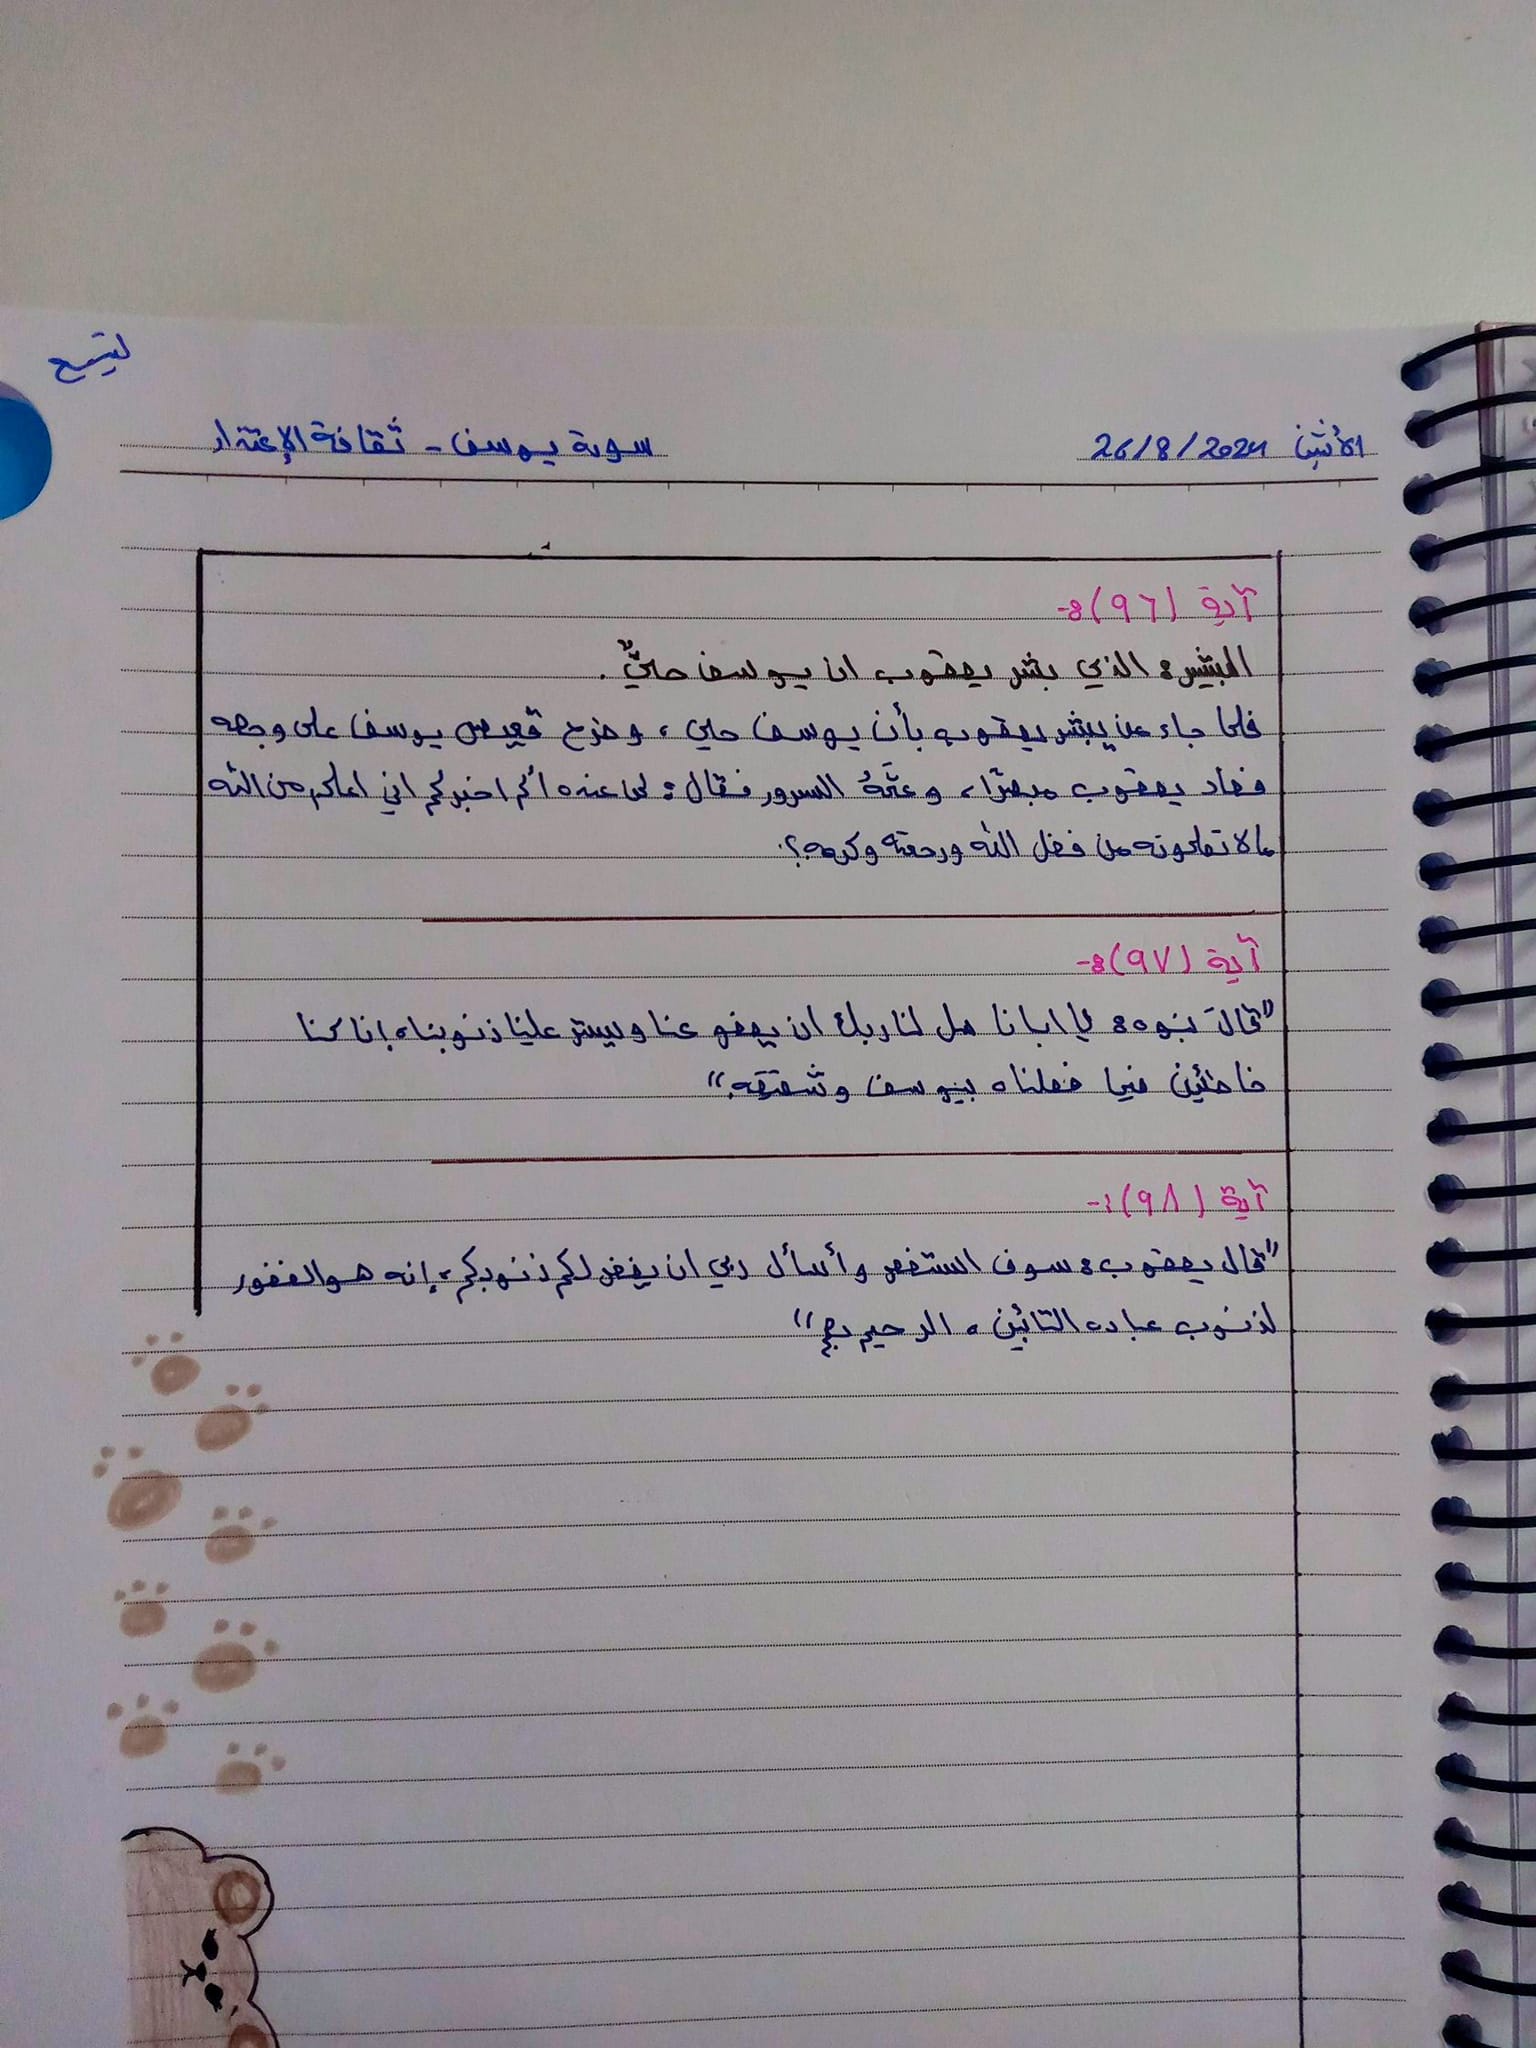 لتبع
الأثنين 26/8/2024 سورة يوسف - ثقافة الإعتذار
آية (٩٦) :-
البشير: الذي بشر يعقوب ان يوسف حيٌّ.
فلما جاء من يبشر يعقوب بأن يوسف حي، وطرح قميص يوسف على وجهه
فعاد يعقوب مبصرًا، وعمَّهُ السرور فقال: لمن عنده ألم اخبركم اني اعلم من الله
مالا تعلمونه من فضل الله ورحمته وكرمه؟.
آية (٩٧) :-
"قالَ بنوه: يا ابانا سل لنا ربك ان يعفو عنا ويستر علينا ذنوبنا، إنا كنا
خاطئين فيما فعلناه بيوسف وشقيقه."
آية (٩٨) :-
"قال يعقوب: سوف استغفر وأسأل ربي ان يغفر لكم ذنوبكم، إنه هو الغفور
لذنوب عباده التائبين، الرحيم بهم"